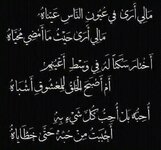 مالي أرى في عيون الناس عيناه
مالي أرى حيث ما أمضي محياه
أختار سكناً له في وسط أعينهم
أم أصبح الخلق للمعشوق أشباه
أحبه بل أحب كل شيء به
أحببت من حبه حتى خطاياه